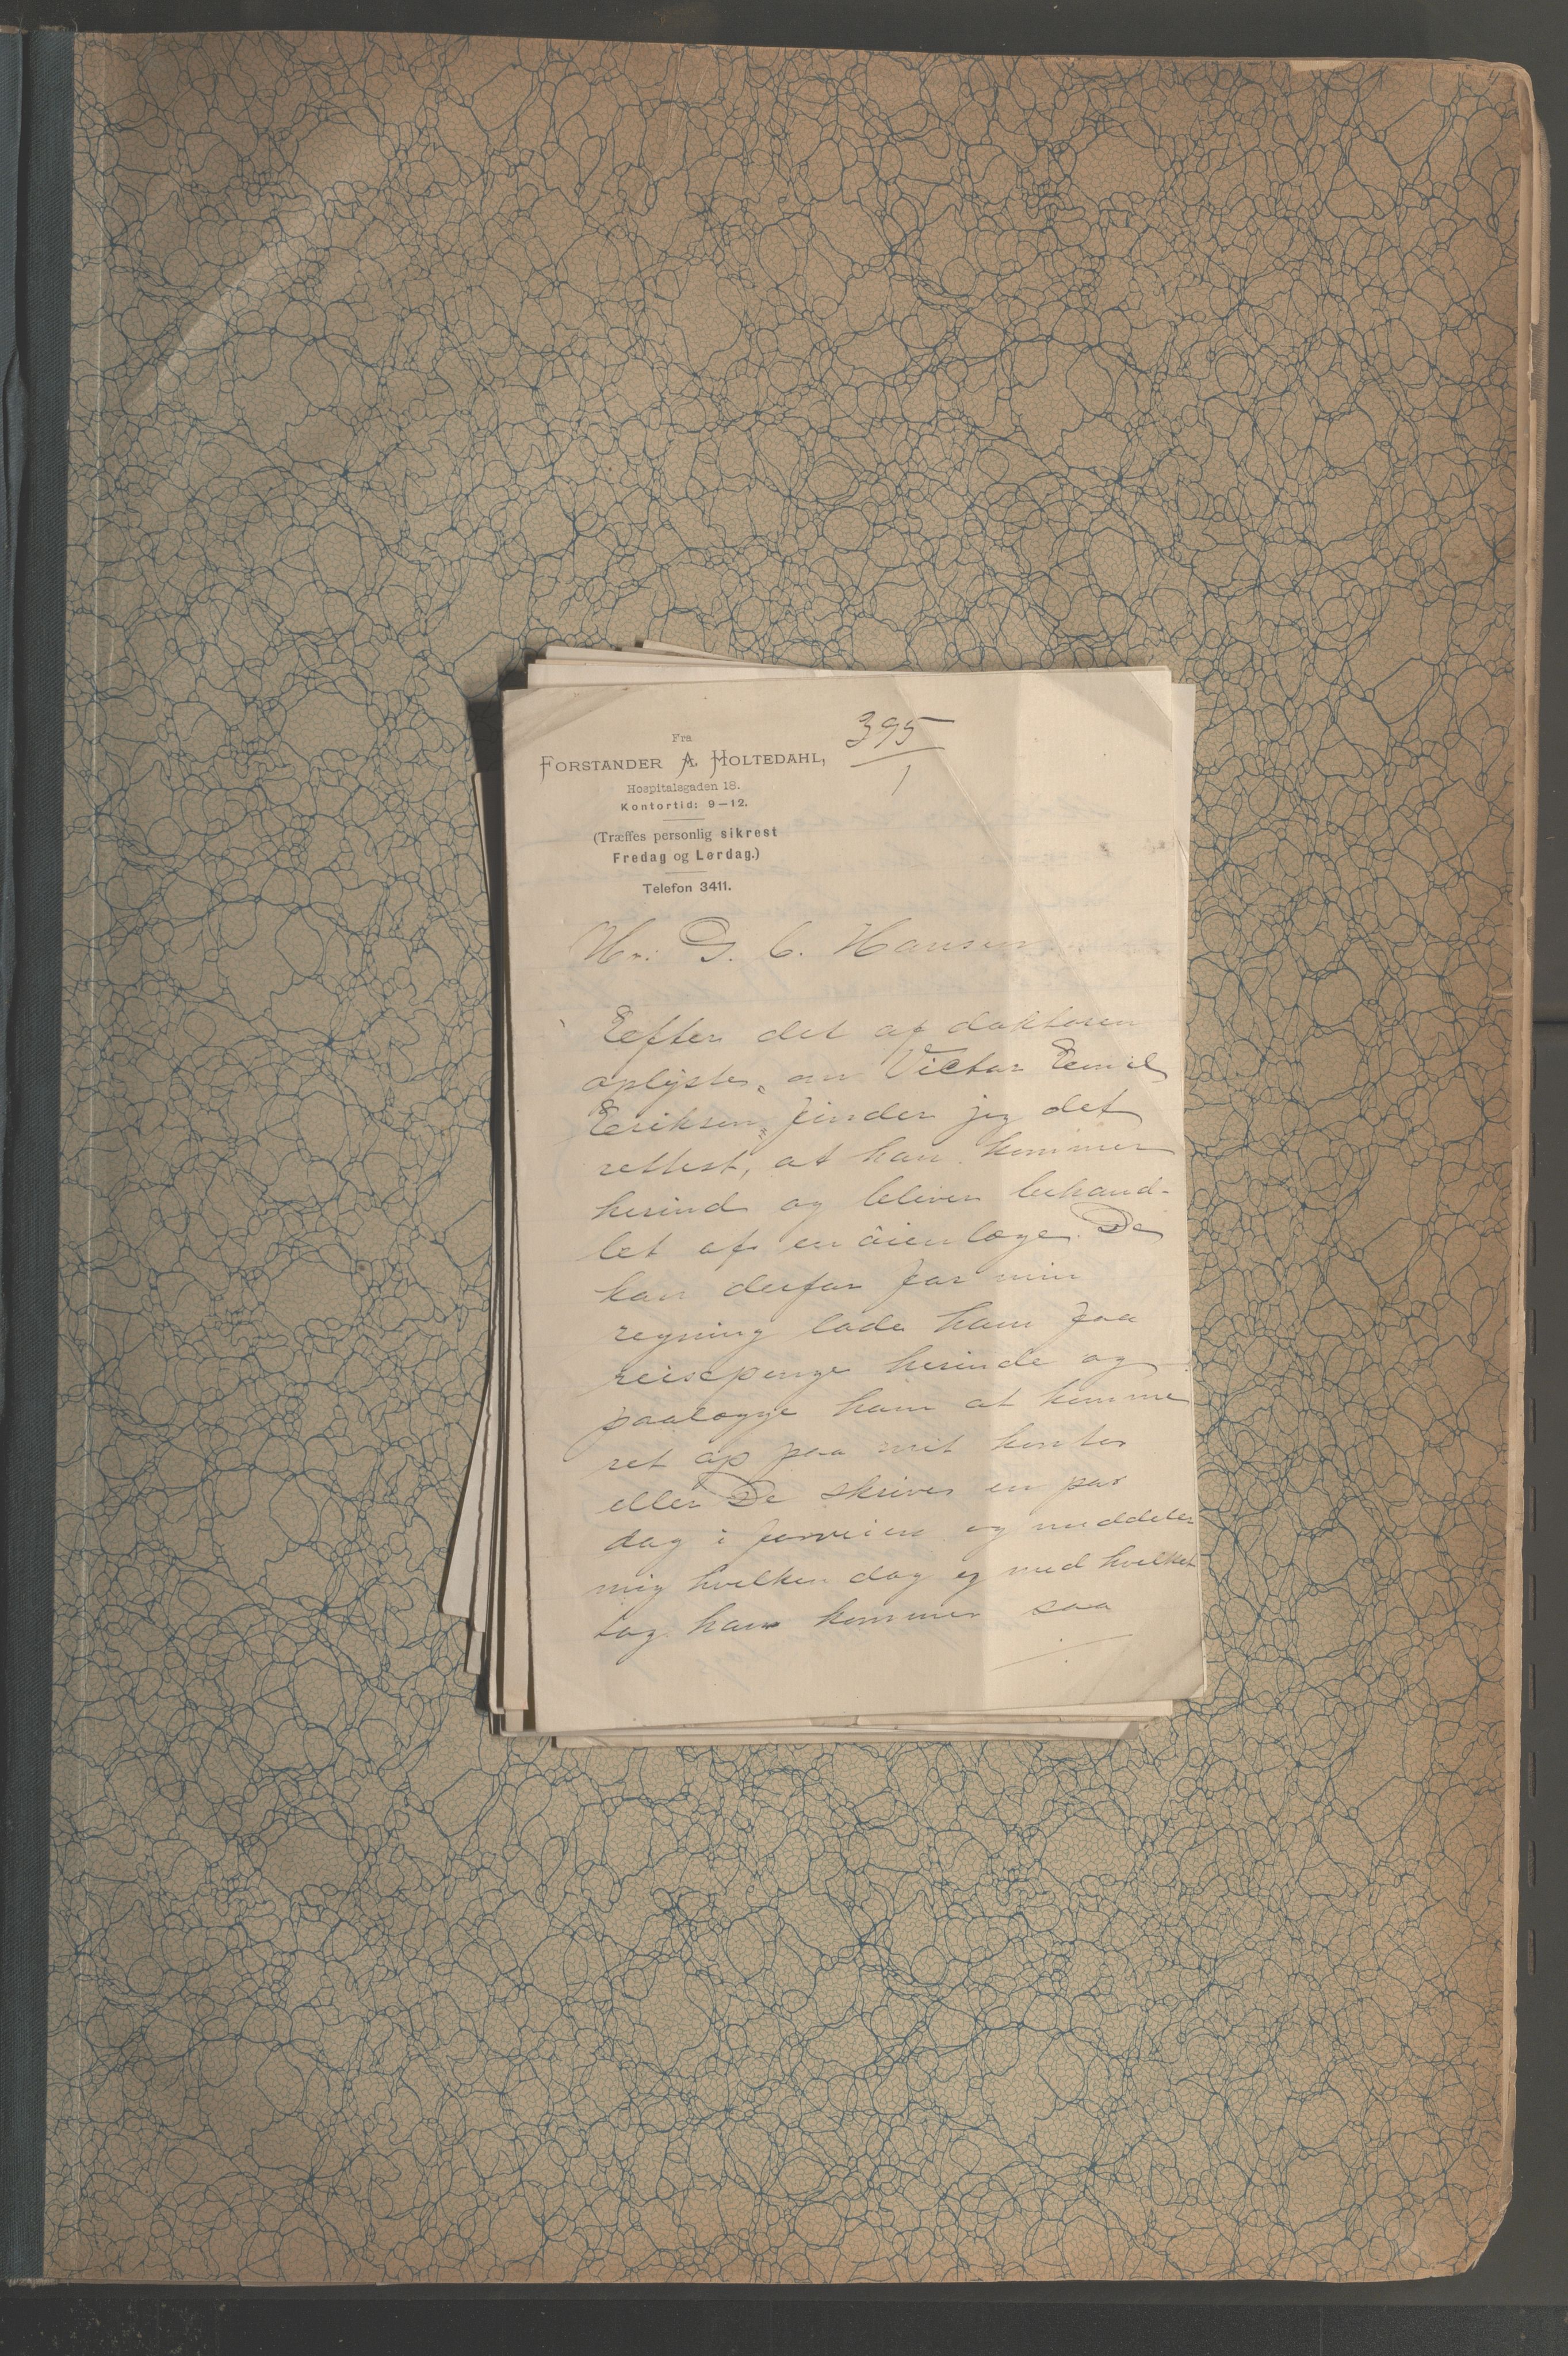 4
395
1
Fra
FORSTANDER A. HOLTEDAHL,
Hospitalsgaden 18.
Kontortid: 9—12.
(Træffes personlig sikrest
Fredag og Lørdag.)
Telefon 3411.
Hr. G. C. Hansen
Eefter det af doktoren
oplyste, om Victor Eemil
Eeriksen, finder jeg det
rettest, at han kommer
herind og bliver behand-
let af en øienlæge. De
kan derfor for min
regning lade ham faa
reisepenge herinde og
paalægge ham at komme
ret op paa mit kontor
eller De skriver en par
dag i forveien og meddeler
mig hvilken dag og med hvilket
tog han kommer saa